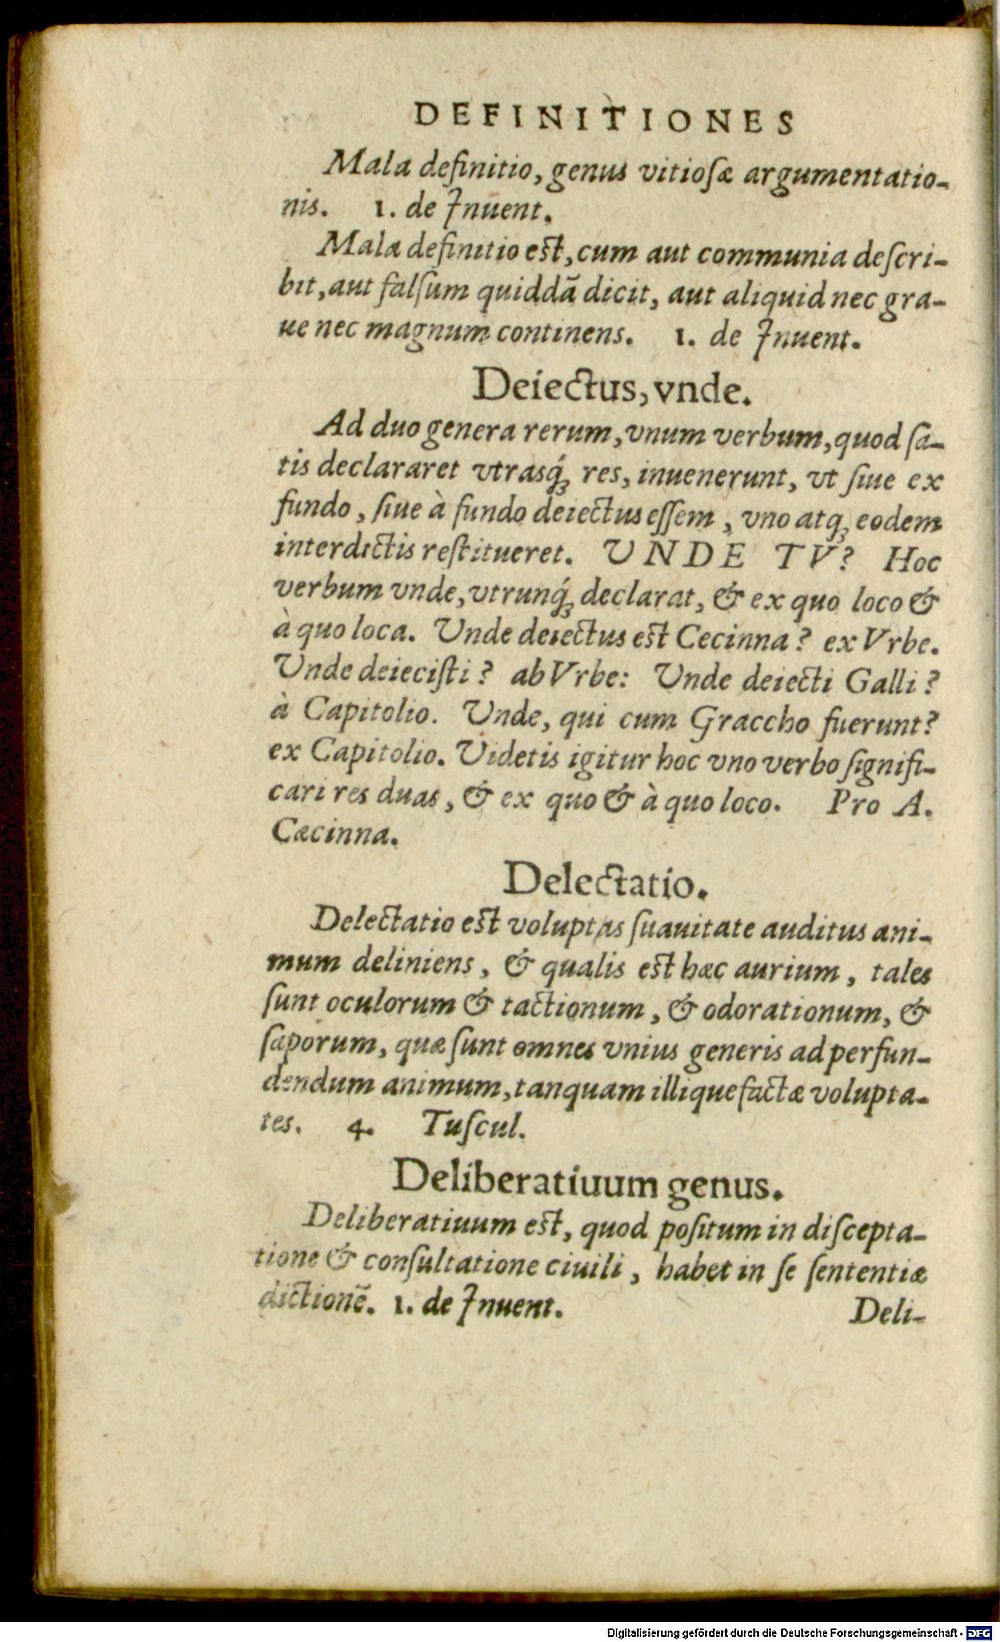 DEFINITIONES
Mala definitio, genus vitioſæ argumentatio-
nis. 1. de Inuent.
Mala definitio est, cum aut communia deſcri-
bit, aut falſum quiddã dicit, aut aliquid nec gra-
ue nec magnum continens. 1. de Inuent.
Deiectus, vnde.
Ad duo genera rerum, vnum verbum, quod ſa-
tis declararet vtrasq́; res, inuenerunt, vt ſiue ex
fundo, ſiue à fundo deiectus eſſem, vno atq; eodem
interdictis reſtitueret. VNDE TV? Hoc
verbum vnde, vtrunq́; declarat, & ex quo loco &
à quo loca. Vnde deiectus est Cecinna? ex Vrbe.
Vnde deieciſti? ab Vrbe: Vnde deiecti Galli?
à Capitolio. Vnde, qui cum Graccho fuerunt?
ex Capitolio. Videtis igitur hoc vno verbo ſignifi-
cari res duas, & ex quo & à quo loco. Pro A.
Cæcinna.
Delectatio.
Delectatio est voluptas ſuauitate auditus ani-
mum deliniens, & qualis est hæc aurium, tales
ſunt oculorum & tactionum, & odorationum, &
ſaporum, quæ ſunt omnes vnius generis ad perfun-
dendum animum, tanquam illiquefactæ volupta-
tes. 4. Tuſcul.
Deliberatiuum genus.
Deliberatiuum est, quod poſitum in diſcepta-
tione & conſultatione ciuili, habet in ſe ſententiæ
dictionẽ. 1. de Inuent.
Deli-
Digitalisierung gefördert durch die Deutsche Forschungsgemeinschaft - DFG